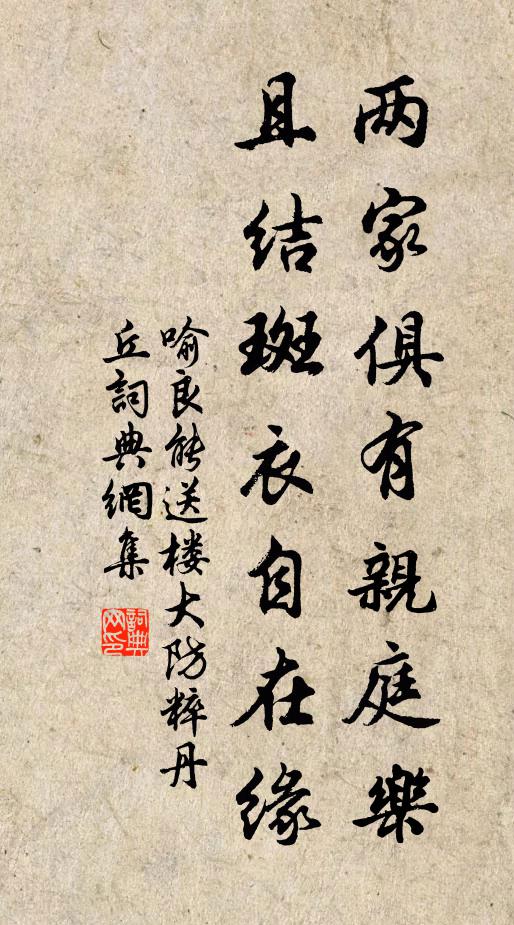 两家俱有親庭樂
且结斑衣自在缘
喻良能送楼大防粹丹
丘詞典網集
詞典网印